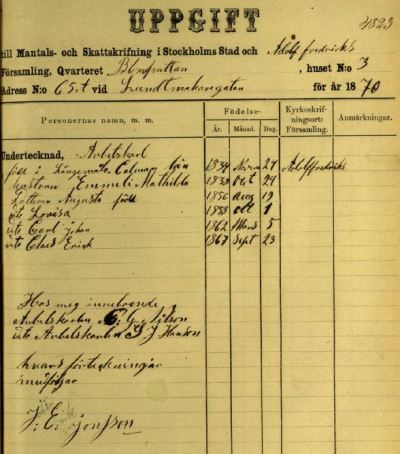 UPPGIFT
4823
till Mantals- och Skattskrifning i Stockholms Stad och Adolf fredricks
Församling, Qvarteret, huset N:o 3
Adress N:o 65 vid för år 1870
Personernas namn, m. m.
Födelse-
År. Månad. Dag.
Kyrkoskrifningsort: Församling.
Anmärkningar.
Undertecknad, Arbetskarl
född i län 1834 Novem 27 Adolf fredriks
hustrun Emmeli Mathilda 1830 Oct 29
Dottern Augusta född 1856 aug 19
dito Lovisa 1858 oct 1
dito Carl Johan 1862 Mars 5
dito Claes Erick 1867 Sept 23
Hos mig inneboende
Arbetskarlen
dito Arbetskarlen
hvars förteckningar
medföljer
J: E. Jonsson